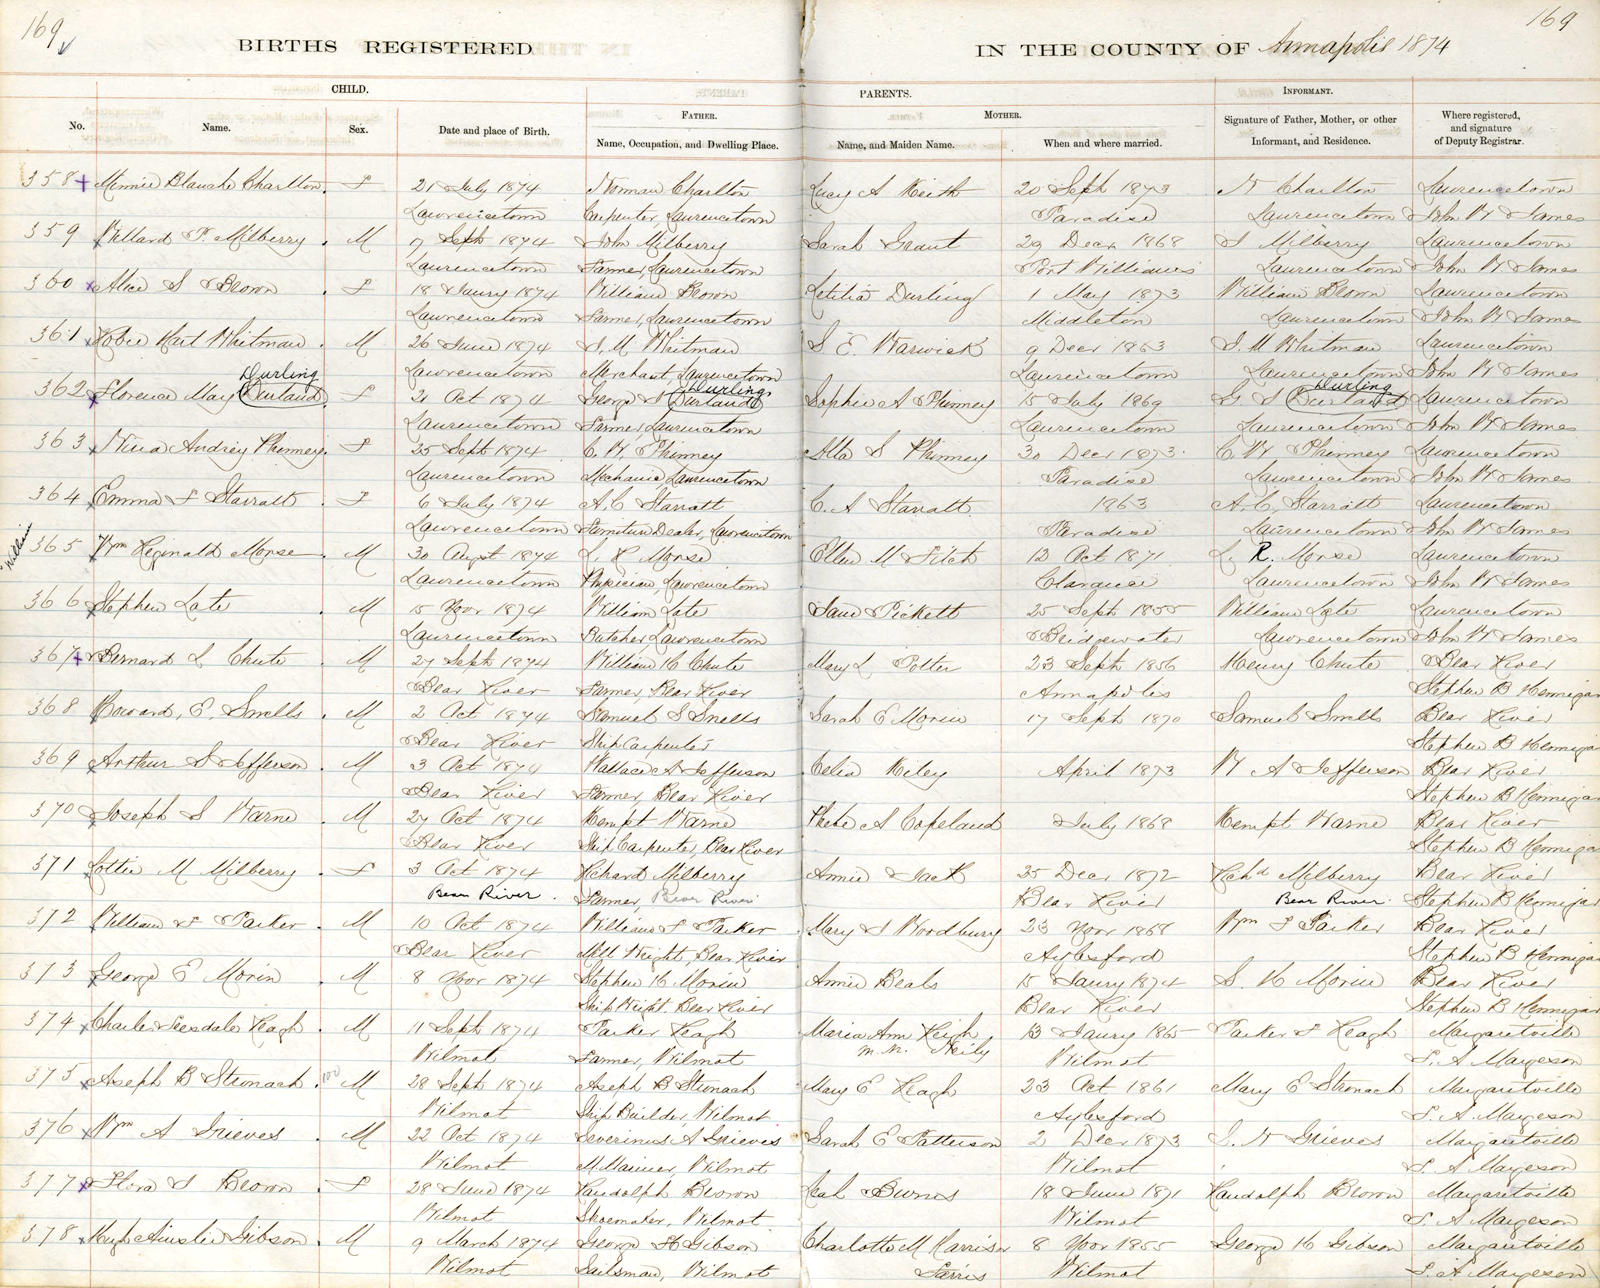 169 169
BIRTHS REGISTERED IN THE COUNTY OF Annapolis 1874
CHILD. PARENTS. INFORMANT.
No. Name. Sex. Date and place of Birth. FATHER. MOTHER. Signature of Father, Mother, or other Where registered,
Name, Occupation, and Dwelling Place. Name, and Maiden Name. When and where married. Informant, and Residence. and signature
of Deputy Registrar.
358 Minnie Blanche Charlton F 21 July 1874 Norman Charlton Lucy A Keith 20 Sept 1873 N Charlton Lawrencetown
Lawrencetown Carpenter, Lawrencetown Paradise Lawrencetown John W James
359 Willard F. Milberry M 7 Sept 1874 John Milberry Sarah Grant 29 Decr 1868 J Milberry Lawrencetown
Lawrencetown Farmer, Lawrencetown Port Williams Lawrencetown John W James
360 Alice S Brown F 18 Jaury 1874 William Brown Letitia Durling 1 May 1873 William Brown Lawrencetown
Lawrencetown Farmer, Lawrencetown Middleton Lawrencetown John W James
361 Hobie Hart Whitman M 26 June 1874 J. M Whitman S E. Warwick 9 Decr 1863 J. M Whitman Lawrencetown
Lawrencetown Merchant, Lawrencetown Lawrencetown Lawrencetown John W James
Durling Durling Durling
362 Florence May Durland F 21 Oct 1874 George S Durland Sophia A Phinney 15 July 1869 G S Durland Lawrencetown
Lawrencetown Farmer, Lawrencetown Lawrencetown Lawrencetown John W James
363 Nina Audrey Phinney F 25 Sept 1874 C. W. Phinney Alta S Phinney 30 Decr 1873 C W Phinney Lawrencetown
Lawrencetown Mechanic Lawrencetown Paradise Lawrencetown John W James
364 Emma F Starratt F 6 July 1874 A. C Starratt C. A Starratt 1863 A. C. Starratt Lawrencetown
Lawrencetown Furniture Dealer, Lawrencetown Paradise Lawrencetown John W James
William
365 Wm Reginald Morse M 30 Augst 1874 L. R. Morse Ellen M Fitch 12 Oct 1871 L. R. Morse Lawrencetown
Lawrencetown Physician, Lawrencetown Clarence Lawrencetown John W James
366 Stephen Late M 15 Novr 1874 William Late Jane Pickett 25 Sept 1855 William Late Lawrencetown
Lawrencetown Butcher Lawrencetown Bridgewater Lawrencetown John W James
367 Bernard L Chute M 27 Sept 1874 William H Chute Mary L Potter 23 Sept 1856 Henry Chute Bear River
Bear River Farmer, Bear River Annapolis Stephen B Hennigar
368 Howard, E, Snells M 2 Oct 1874 Samuel S Snells Sarah E Morin 17 Sept 1870 Samuel Snells Bear River
Bear River Ship Carpenter Stephen B Hennigar
369 Arthur S Jefferson M 3 Oct 1874 Wallace A Jefferson Celia Riley April 1873 W A Jefferson Bear River
Bear River Farmer, Bear River Stephen B Hennigar
370 Joseph S Warne M 27 Oct 1874 Hempt Warne Phebe A Copeland July 1868 Hempt Warne Bear River
Bear River Ship Carpenter, Bear River Stephen B Hennigar
371 Lottie M Milberry F 3 Oct 1874 Richard Milberry Annie Jack 25 Decr 1872 Richd Milberry Bear River
Bear River. Farmer Bear River Bear River Bear River. Stephen B Hennigar
372 William F Parker M 10 Oct 1874 William F Parker Mary S Woodbury 23 Novr 1868 Wm F Parker Bear River
Bear River Mill Wright, Bear River Aylesford Stephen B Hennigar
373 George E Morin M 8 Novr 1874 Stephen H Morin Annie Beals 15 Jaury 1874 S. H Morin Bear River
Ship Wright. Bear River Bear River Stephen B Hennigar
374 Charles Teesdale Keagh M 11 Sept 1874 Parker Keagh Maria Ann Keigh 13 Jaury 1865 Parker F Keagh Margaretville
Wilmot Farmer, Wilmot m.n. Neily Wilmot S. A Margeson
375 Aseph B Stronach 100 M 28 Sept 1874 Aseph B Stronach Mary E Keagh 23 Oct 1861 Mary E Stronach Margaretville
Wilmot Ship Builder, Wilmot Aylesford S. A. Margeson
376 Wm A Grieves M 22 Oct 1874 Severinus A Grieves Sarah E Patterson 2 Decr 1873 S. N Grieves Margaretville
Wilmot M Mariner, Wilmot Wilmot S. A Margeson
377 Flora S Brown F 28 June 1874 Randolph Brown Leah Burns 18 June 1871 Randolph Brown Margaretville
Wilmot Shoemaker, Wilmot Wilmot S. A Margeson
378 Hugh Ainslie Gibson M 9 March 1874 George H Gibson Charlotte M Harrison 8 Novr 1855 George H Gibson Margaretville
Wilmot Sailsman, Wilmot Farris Wilmot S. A Margeson